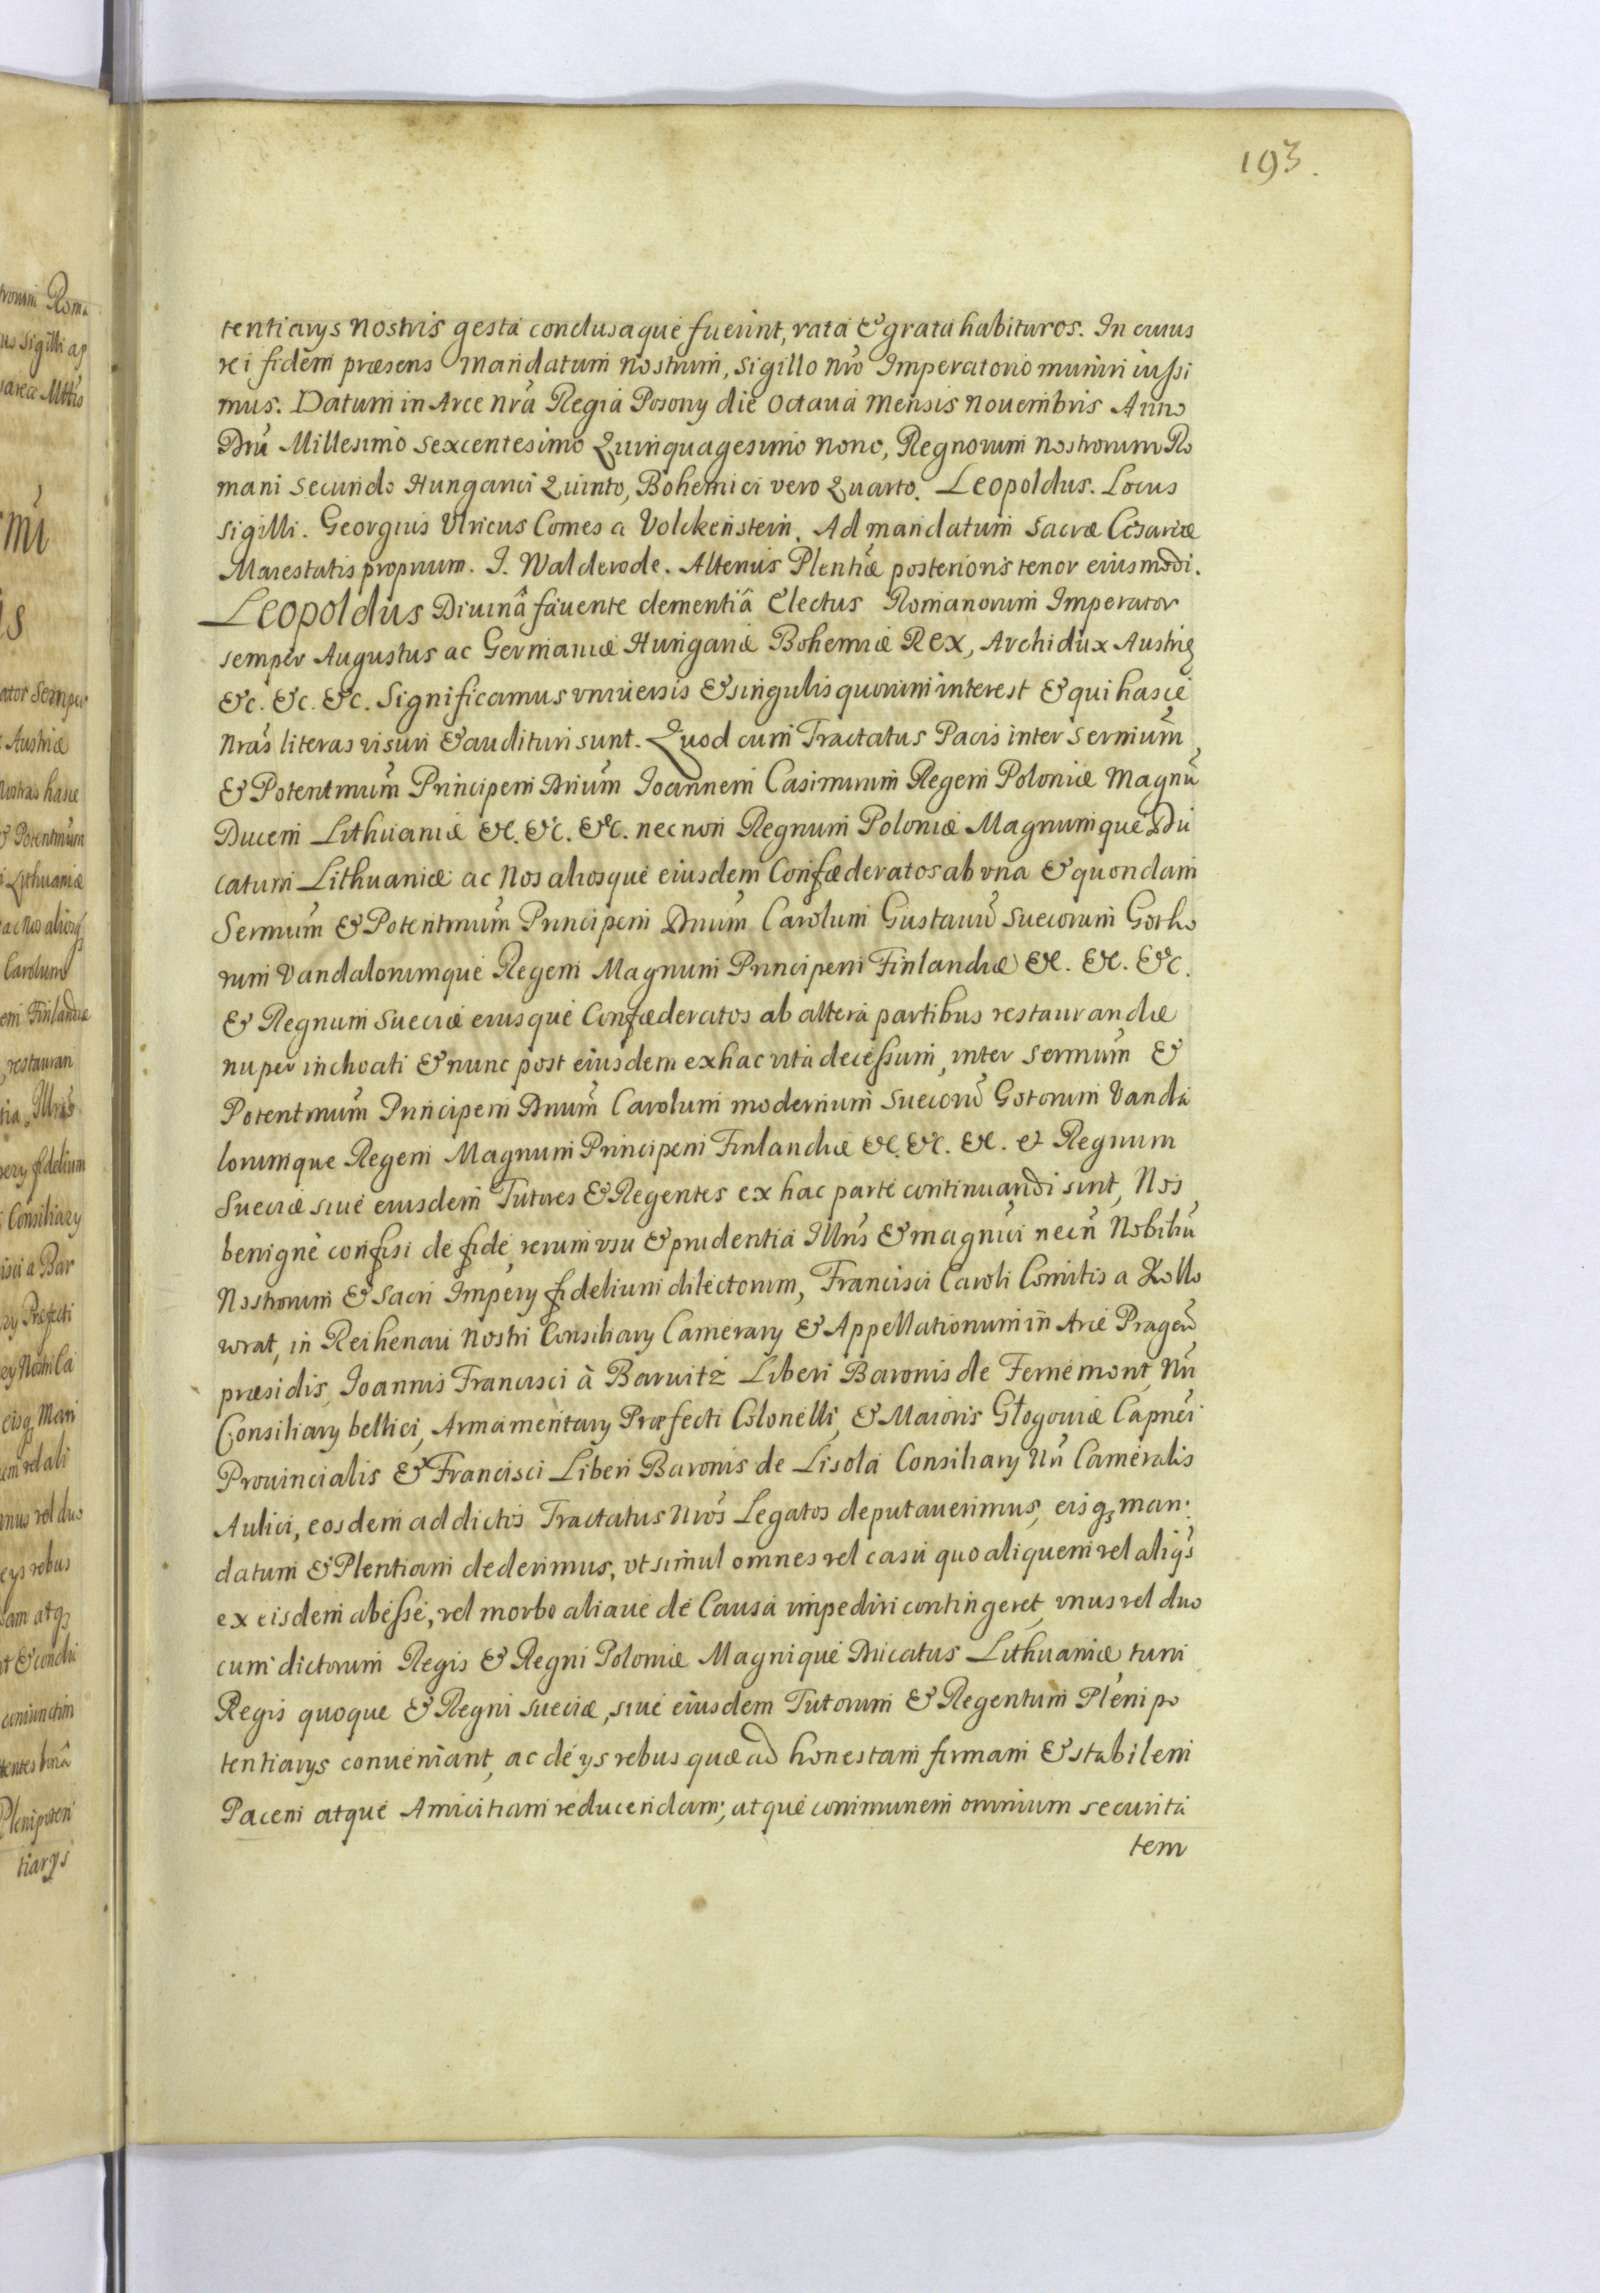 193.
tentiarys nostris gesta conclusaque fuerint, rata & grata habituros. In cuius
rei fidem præsens mandatum nostrum, sigillo nro Imperatorio muniri iussi
mus. Datum in Arce nrã Regia Posony die octaua mensis nouembris Anno
Dni Millesimo sexcentesimo Quinquagesimo nono, Regnorum nostrorum Ro
mani secundo Hungarici Quinto, Bohemici vero Quarto. Leopoldus. Locus
sigilli. Georgius Vlricus Comes a Volckenstein. Ad mandatum Sacræ Cesareæ
Maiestatis proprium. I. Walderode. Alterius Plentiæ posterioris tenor eiusmodi.
Leopoldus Diuinâ fauente clementiâ Electus Romanorum Imperator
semper Augustus ac Germaniæ Hungariæ Bohemiæ Rex, Archidux Austrię
&c. &c. &c. Significamus vniuersis & singulis quorum interest & qui hasce
nras literas visuri & audituri sunt. Quod cum Tractatus Pacis inter sermum
& Potentmum Principem Dnum Joannem Casimirum Regem Poloniæ Magnũ
Ducem Lithuaniæ &c. &c. &c. nec non Regnum Poloniæ Magnumque Du
catum Lithuaniæ ac Nos aliosque eiusdem Confæderatos ab vna & quondam
Sermum & Potentmum Principem Dnum Carolum Gustauũ Suecorum Gotho
rum Vandalorumque Regem Magnum Principem Finlandiæ &c. &c. &c.
& Regnum Sueciæ eiusque Confæderatos ab altera partibus restaurandæ
nuper inchoati & nunc post eiusdem ex hac vita decessum, inter sermum &
Potentmum Principem Dnum Carolum modernum Suecorũ Gotorum Vanda
lorumque Regem Magnum Principem Finlandiæ &c. &c. &c. et Regnum
Sueciæ siue eiusdem Tutores & Regentes ex hac parte continuandi sint, Nos
benigne confisi de fide, rerum vsu & prudentia Illris & magnici necñ Nobiliũ
Nostrorum & Sacri Impery fidelium dilectorum, Francisci Caroli Comitis a Kollo
wrat, in Reihenau nostri Consiliary Camerary & Appellationum in Arce Prageñ
præsidis, Joannis Francisci à Barwitz Liberi Baronis de Fernemont, nri
Consiliary bellici, Armamentary Præfecti Colonelli, & Maioris Glogouiæ Capnei
Prouincialis & Francisci Liberi Baronis de Lisola Consiliary nri Cameralis
Aulici, eosdem ad dictos Tractatus nros Legatos deputauerimus, eisq3 man:
datum & Plentiam dederimus, vt simul omnes vel casu quo aliquem vel aliqs
ex eisdem abesse, vel morbo aliaue de Causa impediri contingeret, vnus vel duo
cum dictorum Regis & Regni Poloniæ Magnique Ducatus Lithuaniæ tum
Regis quoque & Regni Sueciæ, siue eiusdem Tutorum & Regentum Plenipo
tentiarys conueniant, ac de ys rebus quæ ad honestam firmam & stabilem
Pacem atque Amicitiam reducendam, atque communem omnium securita
tem